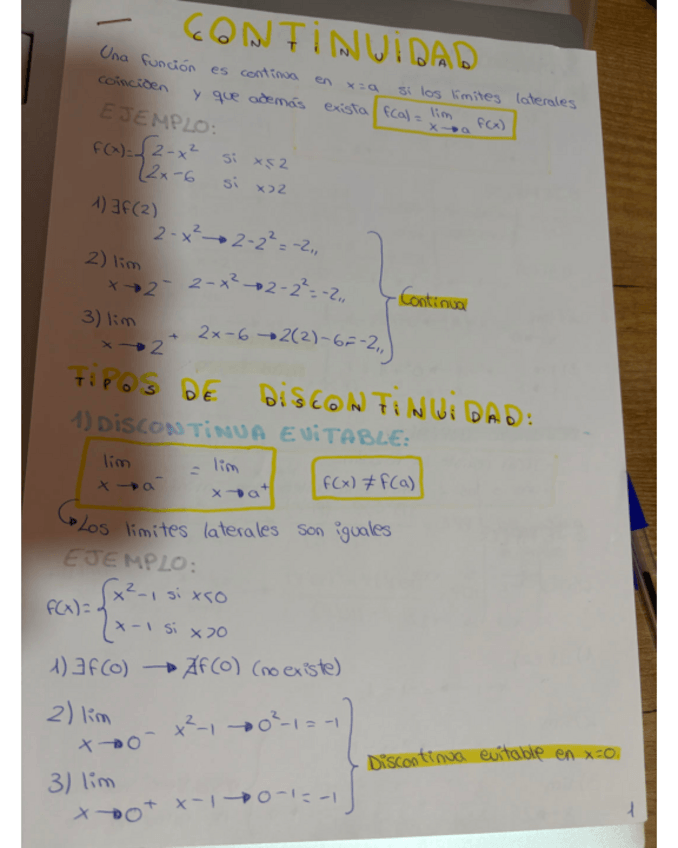 CONTINUIDAD
Una función es continua en x=a si los límites laterales
coinciden y que además exista f(a) = lim x→a f(x)
EJEMPLO:
f(x)= { 2-x² si x≤2
2x-6 si x>2
1) ∃f(2)
2-x² → 2-2² = -2,,
2) lim x→2⁻ 2-x² → 2-2² = -2,,
3) lim x→2⁺ 2x-6 → 2(2)-6 = -2,,
Continua
TIPOS DE DISCONTINUIDAD:
1) DISCONTINUA EVITABLE:
lim x→a⁻ = lim x→a⁺ f(x) ≠ f(a)
↳ Los limites laterales son iguales
EJEMPLO:
f(x)= { x²-1 si x<0
x-1 si x>0
1) ∃f(0) → ∄f(0) (no existe)
2) lim x→0⁻ x²-1 → 0²-1 = -1
3) lim x→0⁺ x-1 → 0-1 = -1
Discontinua evitable en x=0.
1